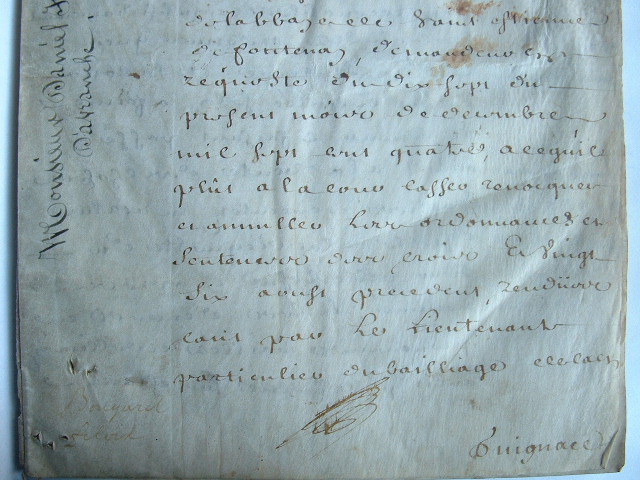 de labbaye de Saint estienne
de fontenay, demandeur en
requeste du dix sept du
present mois de decembre
mil sept cent quatre, a ce quil
plût a la cour casser revocquer
et annuller les ordonnances et
sentences des trois Et Vingt
six aoust precedent, rendües
tant par le Lieutenant
particulier du bailliage de Caen
Monsieur Daniel
Davranche